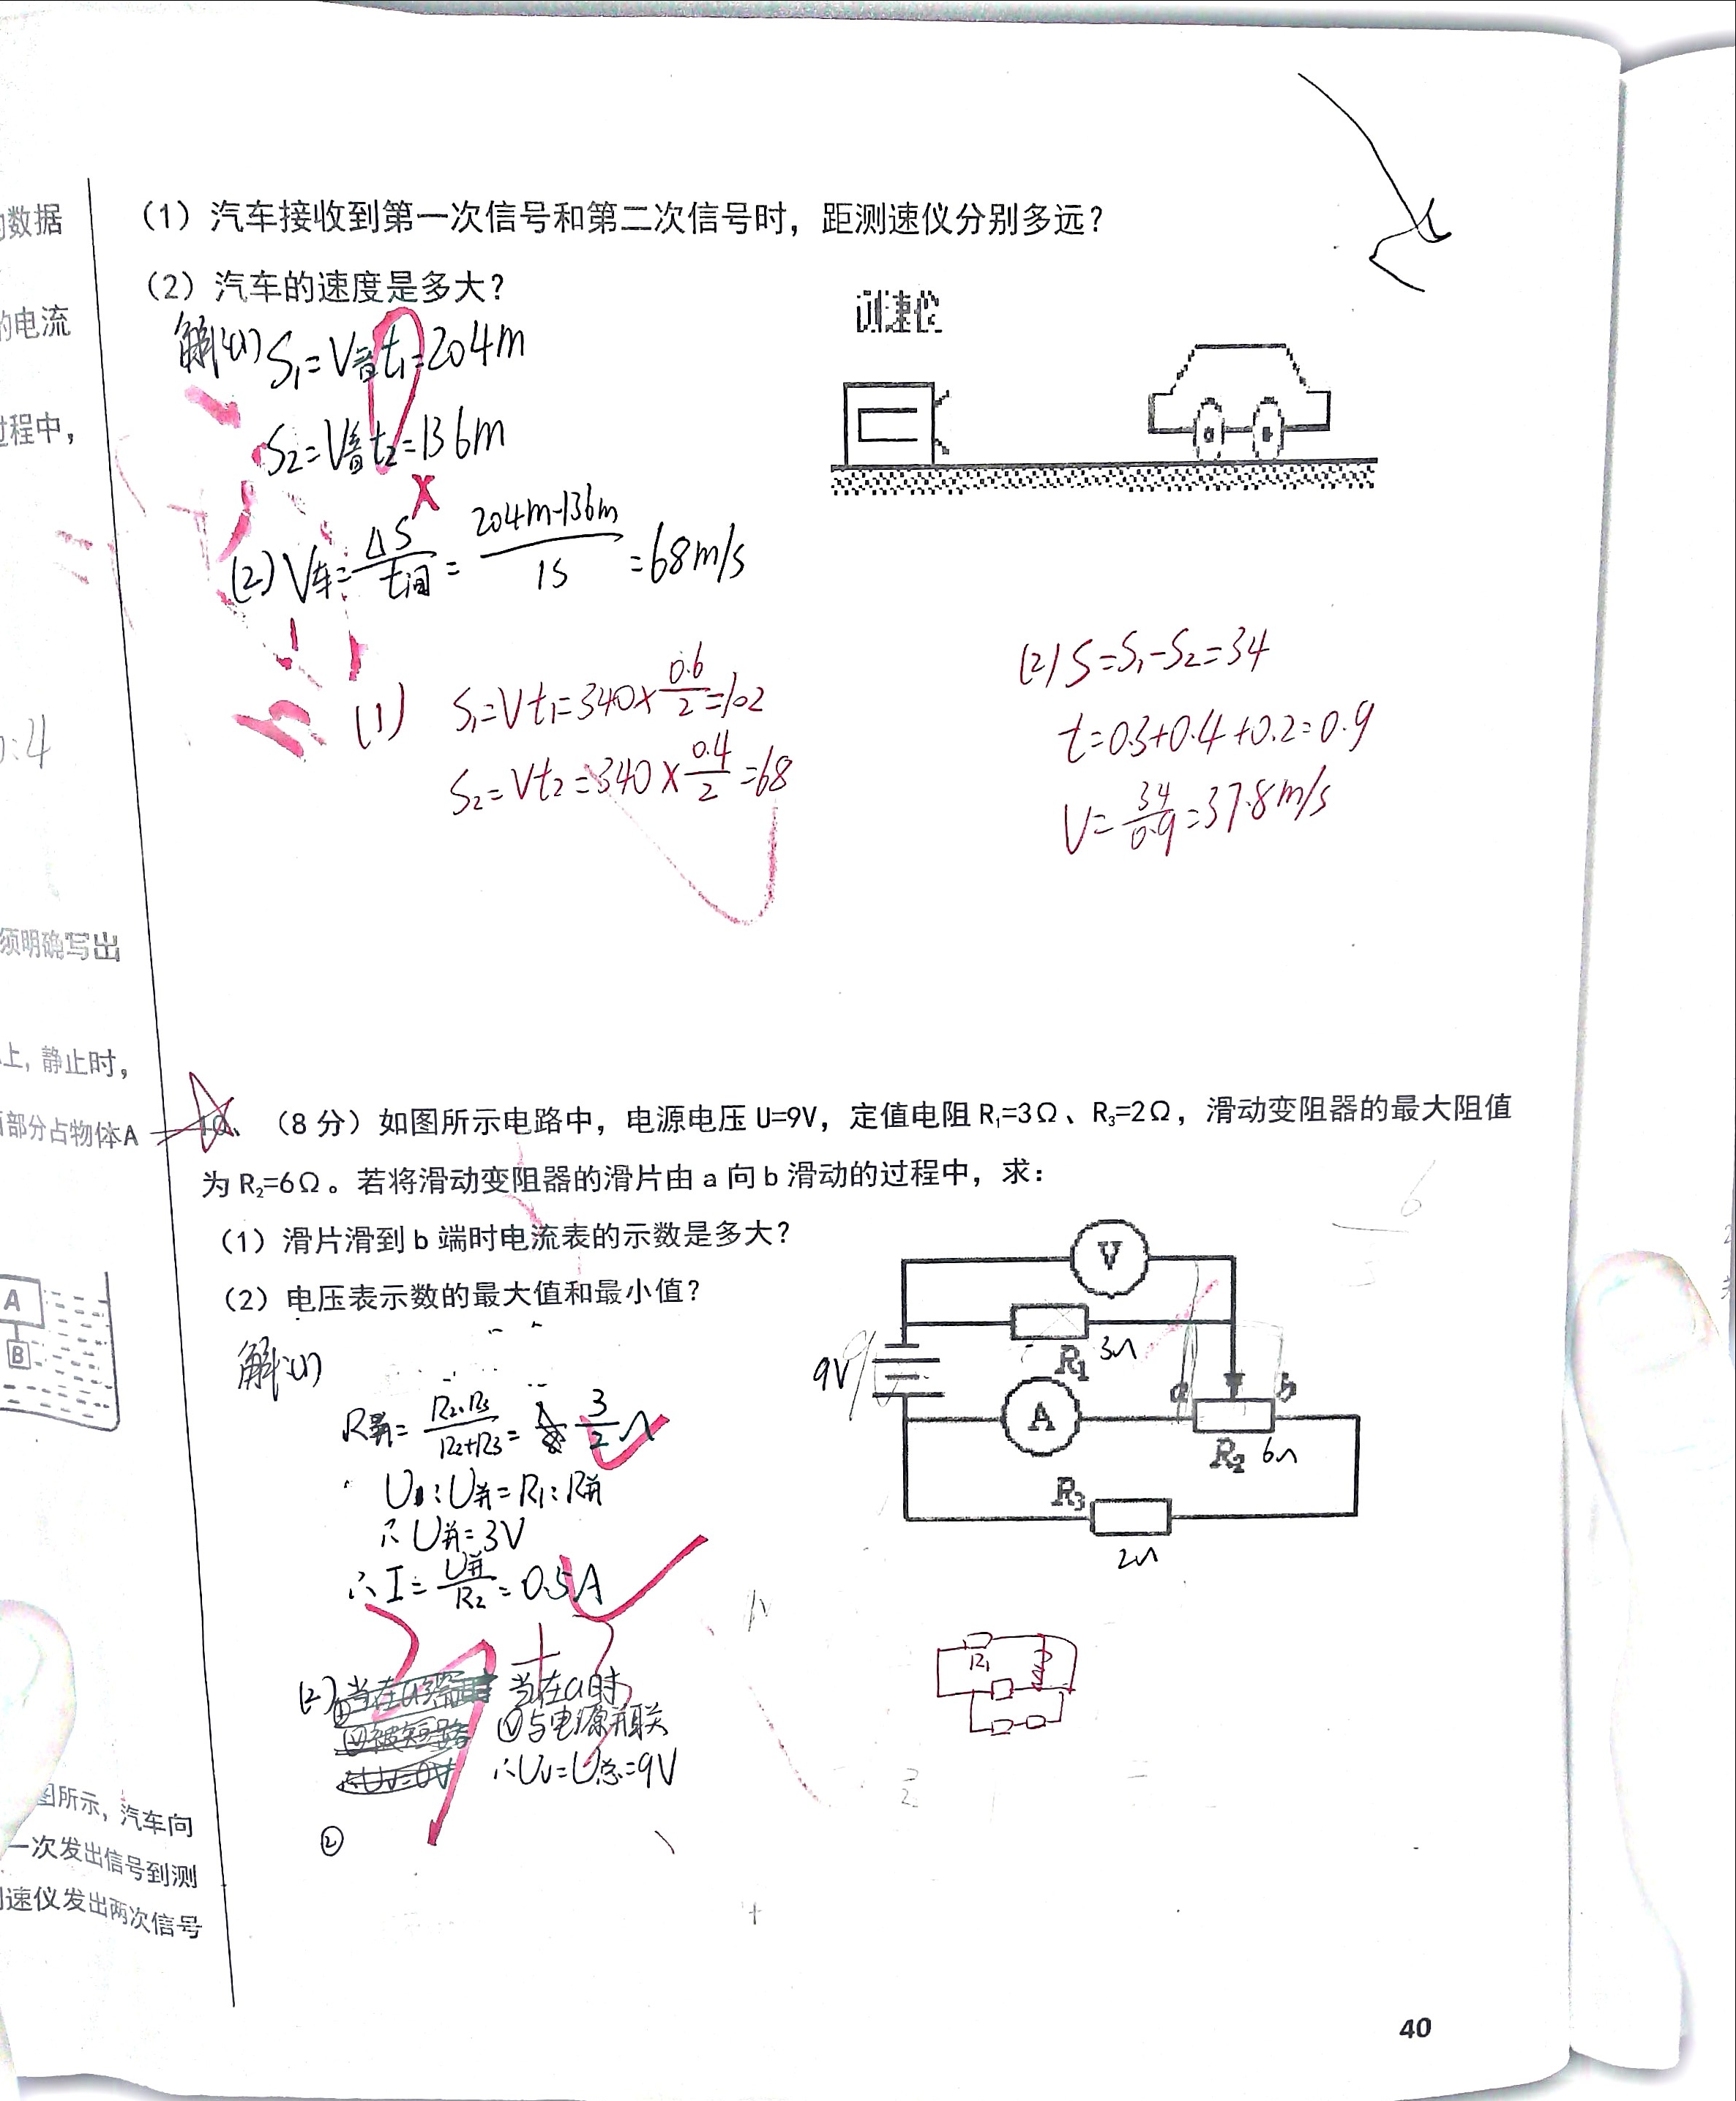 数据
的电流
过程中，
须明确写出
上，静止时，
部分占物体A
A
B
图所示，汽车向
一次发出信号到测
速仪发出两次信号
（1）汽车接收到第一次信号和第二次信号时，距测速仪分别多远？
（2）汽车的速度是多大？
测速仪
解:(1) S₁=V音t₁=204m
S₂=V音t₂=136m
(2) V车=ΔS/t间=(204m-136m)/1s=68m/s
(1) S₁=Vt₁=340×0.6/2=102
S₂=Vt₂=340×0.4/2=68
(2) S=S₁-S₂=34
t=0.3+0.4+0.2=0.9
V=34/0.9=37.8m/s
10、（8 分）如图所示电路中，电源电压 U=9V，定值电阻 R₁=3Ω、R₃=2Ω，滑动变阻器的最大阻值
为 R₂=6Ω。若将滑动变阻器的滑片由 a 向 b 滑动的过程中，求：
（1）滑片滑到 b 端时电流表的示数是多大？
（2）电压表示数的最大值和最小值？
V
R₁ 3Ω
9V
A
a
b
R₂ 6Ω
R₃
2Ω
解:(1)
R并=R₂·R₃/(R₂+R₃)=3/2Ω
U₁:U并=R₁:R并
∴U并=3V
∴I=U并/R₂=0.5A
(2) 当在a时
Ⓥ与电源并联
∴Uv=U总=9V
②
R₁
40